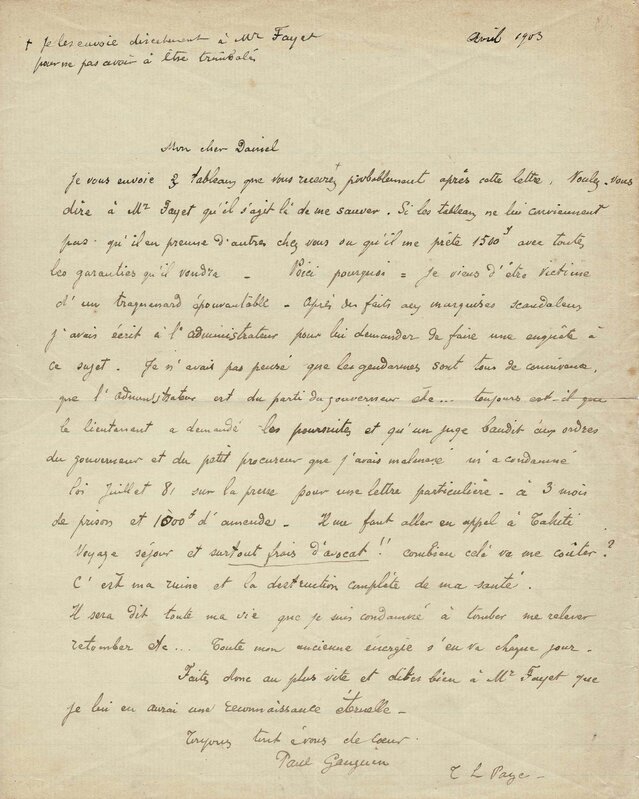 + Je les envoie directement à Mr Fayet
pour ne pas avoir à être trimbalés
Avril 1903
Mon cher Daniel
Je vous envoie 3 tableaux que vous recevrez + probablement après cette lettre. Voulez-vous
dire à Mr Fayet qu'il s'agit là de me sauver. Si les tableaux ne lui conviennent
pas qu'il en prenne d'autres chez vous ou qu'il me prête 1500f avec toutes
les garanties qu'il voudra - Voici pourquoi = Je viens d'être victime
d'un traquenard épouvantable - Après des faits aux marquises scandaleux
j'avais écrit à l'administrateur pour lui demander de faire une enquête à
ce sujet. Je n'avais pas pensé que les gendarmes sont tous de connivence,
que l'administrateur est du parti du gouverneur etc... toujours est-il que
le lieutenant a demandé les poursuites et qu'un juge bandit aux ordres
du gouverneur et du petit procureur que j'avais malmené m'a condamné
loi Juillet 81 sur la presse pour une lettre particulière - à 3 mois
de prison et 1000f d'amende - Il me faut aller en appel à Tahiti
Voyage séjour et surtout frais d'avocat !! combien celà va me coûter ?
C'est ma ruine et la destruction complète de ma santé.
Il sera dit toute ma vie que je suis condamné à tomber me relever
retomber etc... Toute mon ancienne énergie s'en va chaque jour.
Faites donc au plus vite et dites bien à Mr Fayet que
je lui en aurai une reconnaissance éternelle -
Toujours tout à vous de Coeur
Paul Gauguin
T L Page -